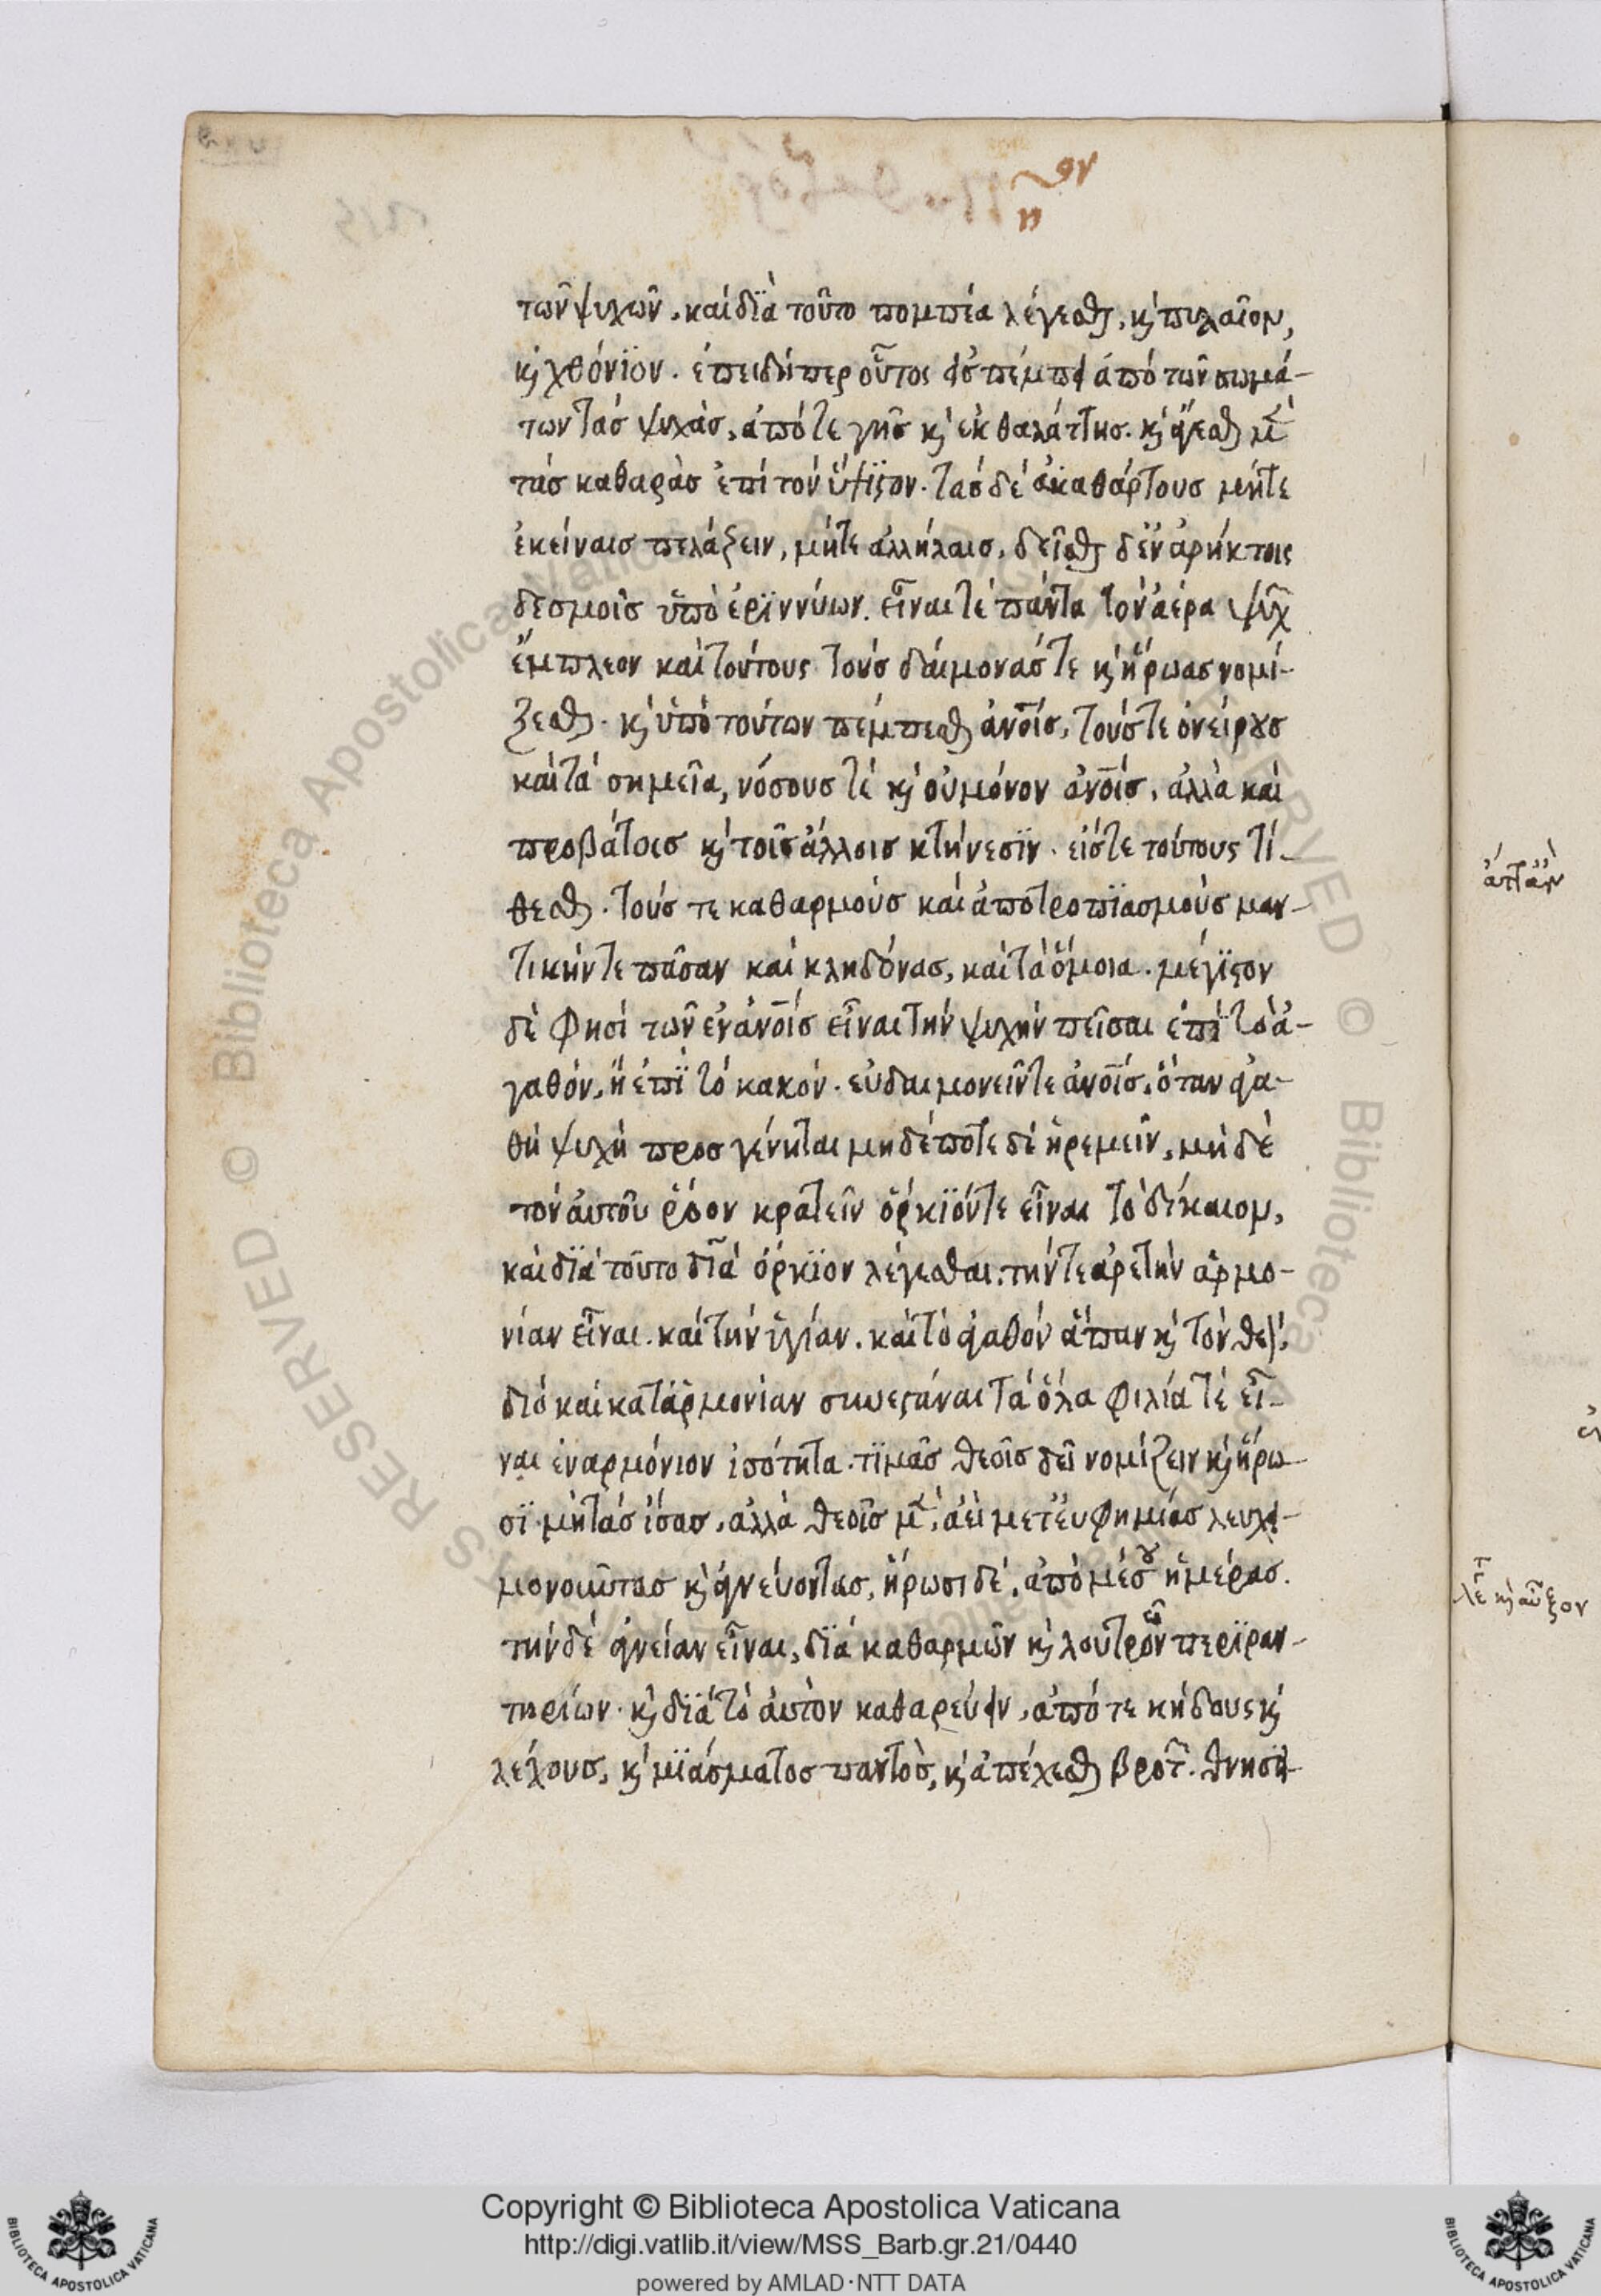 τῶν ψυχῶν, καὶ διὰ τοῦτο πομπέα λέγεσθαι, κὶ πυλαῖον,
κὶ χθόνϊον. ἐπειδήπερ οὗτος εἰσπέμπει ἀπὸ τῶν σωμά-
των τὰσ ψυχὰσ, ἀπό τε γῆσ κὶ ἐκ θαλάττησ. κὶ ἄγεσθαι μὲ
τὰσ καθαρὰσ ἐπὶ τὸν ὕψιστον. τὰσ δὲ ἀκαθάρτους μήτε
ἐκείναισ πελάζειν, μήτε ἀλλήλαισ, δεῖσθαι δ' ἐν ἀρήκτοις
δεσμοῖσ ὑπὸ ἐρϊννύων. εἶναί τε πάντα τὸν ἀέρα ψυχ
ἔμπλεον καὶ τούτους τοὺσ δαίμονάσ τε κὶ ἥρωασ νομί-
ζεσθαι. κὶ ὑπὸ τούτων πέμπεσθαι ἀνοῖσ, τούσ τε ὀνείρουσ
καὶ τὰ σημεῖα, νόσουσ τὲ κὶ οὐ μόνον ἀνοῖσ, ἀλλὰ καὶ
προβάτοισ κὶ τοῖσ ἄλλοισ κτήνεσϊν. εἴσ τε τούτους τί-
θεσθαι. τούσ τε καθαρμοὺσ καὶ ἀποτροπϊασμοὺσ μαν-
τικήν τε πᾶσαν καὶ κληδόνασ, καὶ τὰ ὅμοια. μέγϊστον
δὲ φησὶ τῶν ἐν ἀνοῖσ εἶναι τὴν ψυχὴν πεῖσαι ἐπὶ τὸ ἀ-
γαθὸν, ἢ ἐπϊ τὸ κακόν. εὐδαιμονεῖν τε ἀνοῖσ, ὅταν ἀγα-
θὴ ψυχὴ προσγένηται μηδέποτε δὲ ἠρεμεῖν, μὴ δὲ
τὸν αὐτοῦ ῥόον κρατεῖν ὅρκϊόν τε εἶναι τὸ δίκαιον,
καὶ δϊὰ τοῦτο δία ὅρκϊον λέγεσθαι. τήν τε ἀρετὴν ἁρμο-
νίαν εἶναι. καὶ τὴν ὑγίαν. καὶ τὸ ἀγαθὸν ἅπαν κὶ τὸν θεὸν.
διὸ καὶ κατ' ἁρμονίαν συνεστάναι τὰ ὅλα φιλία τὲ εἶ-
ναι ἐναρμόνιον ἰσότητα. τϊμᾶσ θεοῖσ δεῖ νομίζειν κὶ ἥρω
σϊ μὴ τὰσ ἴσασ, ἀλλὰ θεοῖσ μὲ, ἀεὶ μετ' εὐφημίασ λευχει-
μονοῦντασ κὶ ἁγνεύοντασ, ἥρωσι δὲ, ἀπὸ μέσου ἡμέρασ.
τὴν δὲ ἁγνείαν εἶναι, δϊὰ καθαρμῶν κὶ λουτρῶν περϊραν-
τηρίων. κὶ δϊὰ τὸ αὐτὸν καθαρεύειν, ἀπό τε κήδους κὶ
λέχουσ, κὶ μϊάσματοσ παντὸσ, κὶ ἀπέχεσθαι βροτ. θνησει-
ἁπτὰν
λε κὶ αὖξον
Copyright © Biblioteca Apostolica Vaticana
http://digi.vatlib.it/view/MSS_Barb.gr.21/0440
powered by AMLAD·NTT DATA